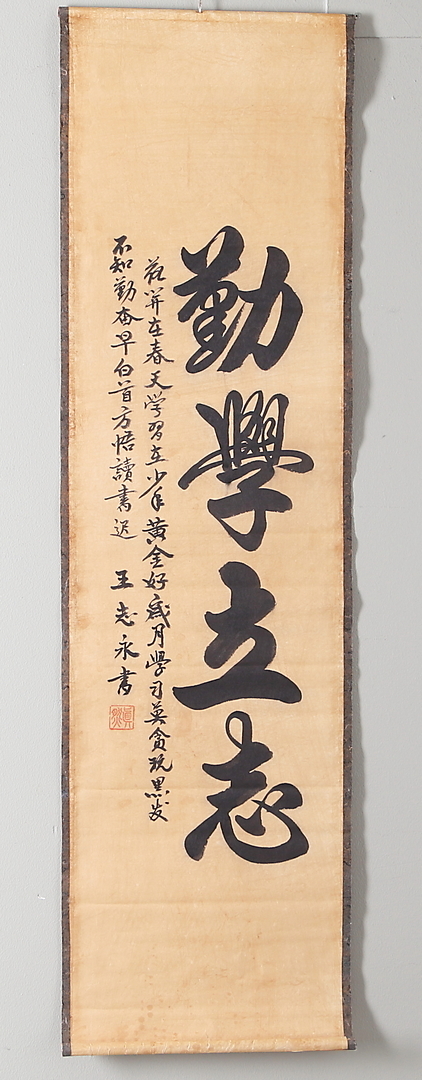 勤學立志
花开在春天学習在少年黄金好歲月學习莫貪玩黑发
不知勤奋早白首方悟讀書迟
王志永書